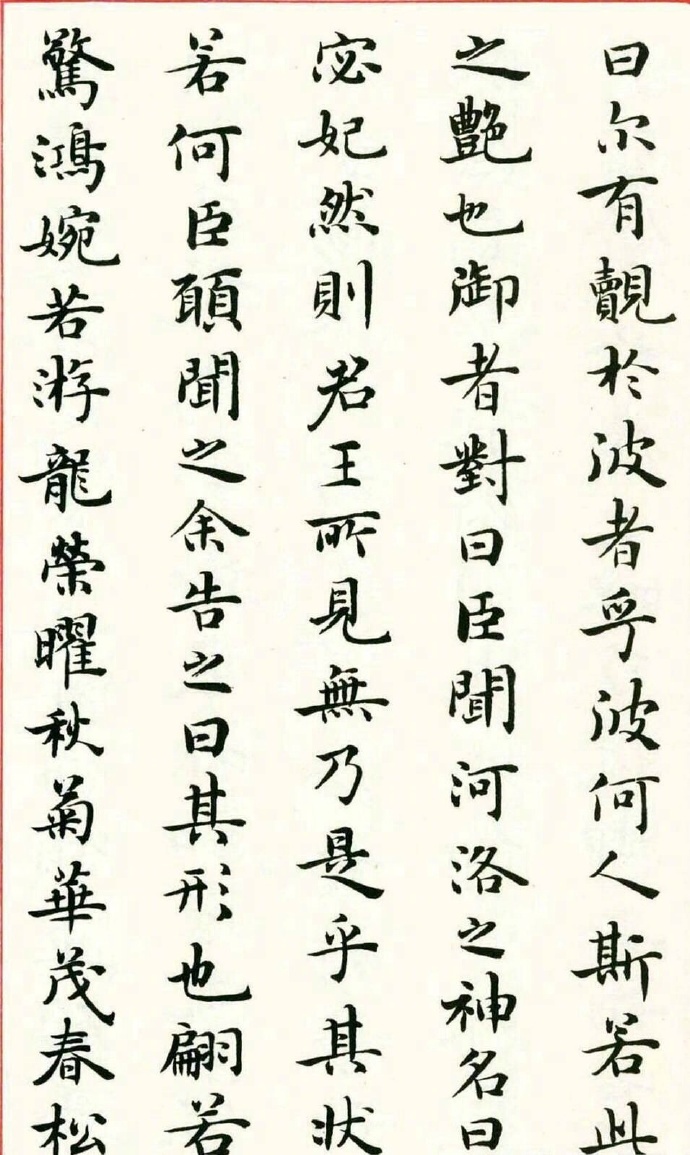 曰尔有覿於波者乎波何人斯若此
之艷也御者對曰臣聞河洛之神名曰
宓妃然則君王所見無乃是乎其状
若何臣頋聞之余告之曰其形也翩若
驚鴻婉若游龍榮曜秋菊華茂春松